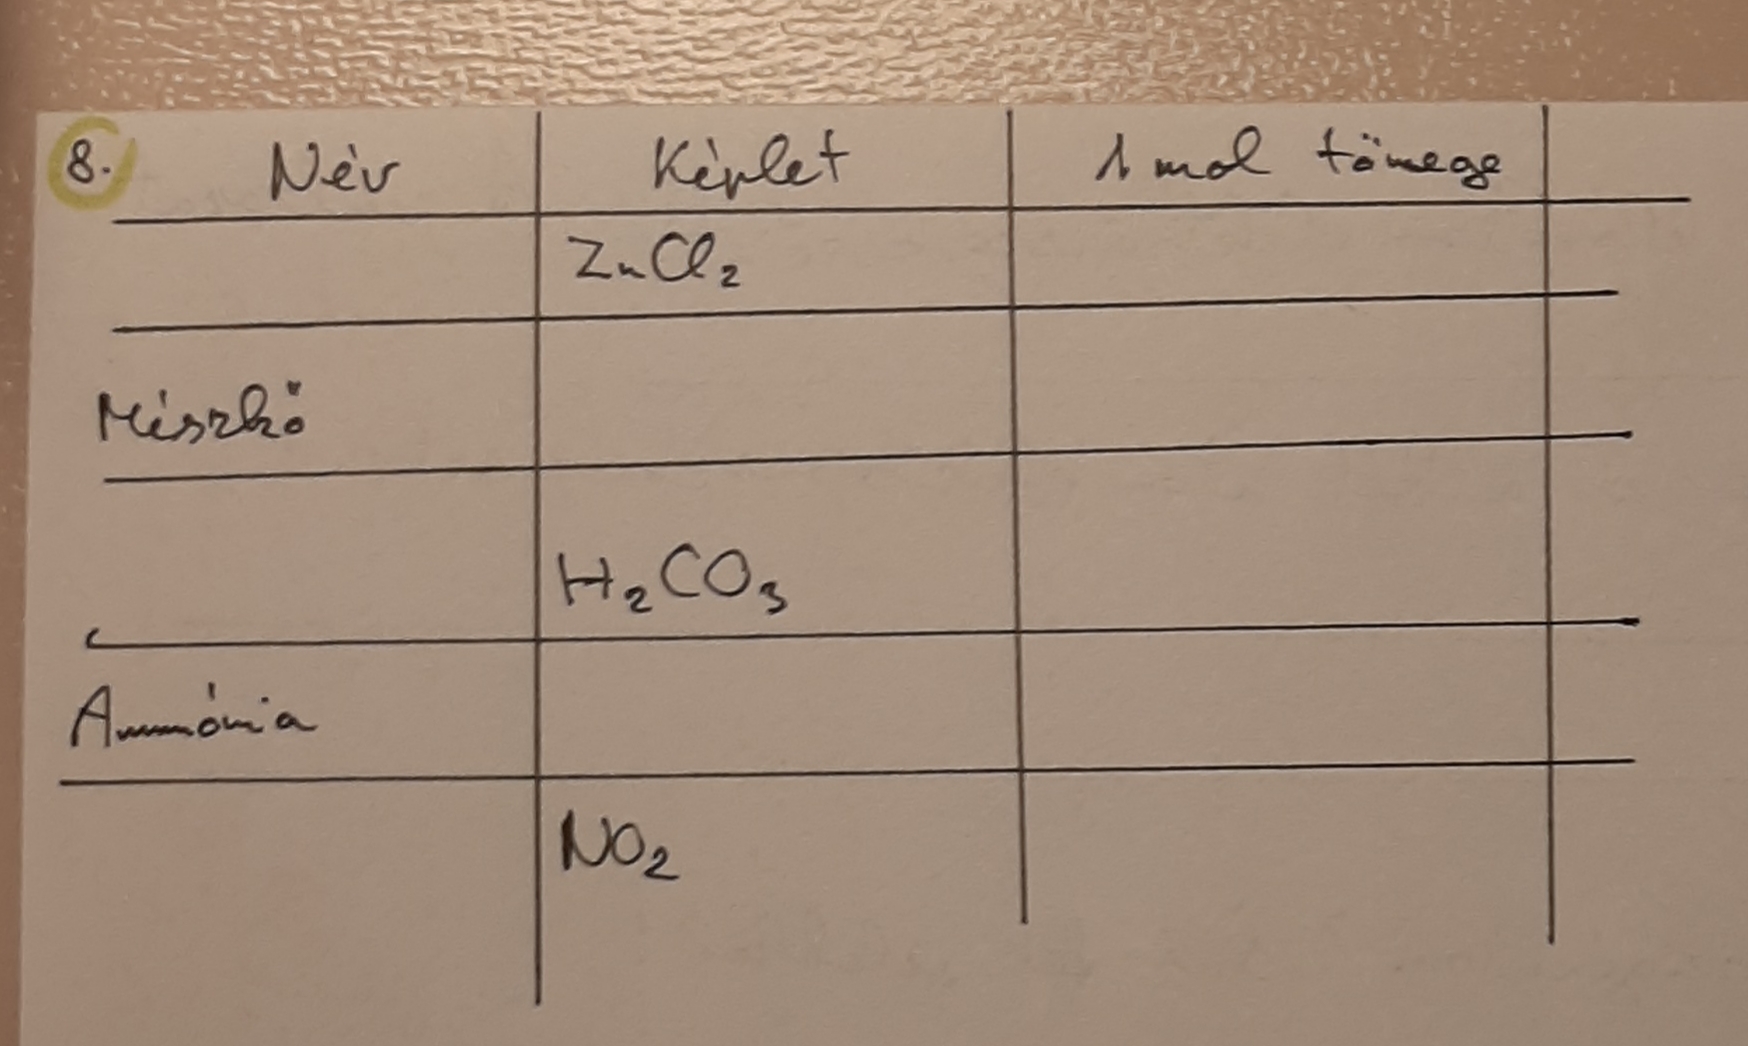 8. Név Képlet 1 mol tömege
ZnCl₂
Mészkő
H₂CO₃
Ammónia
NO₂